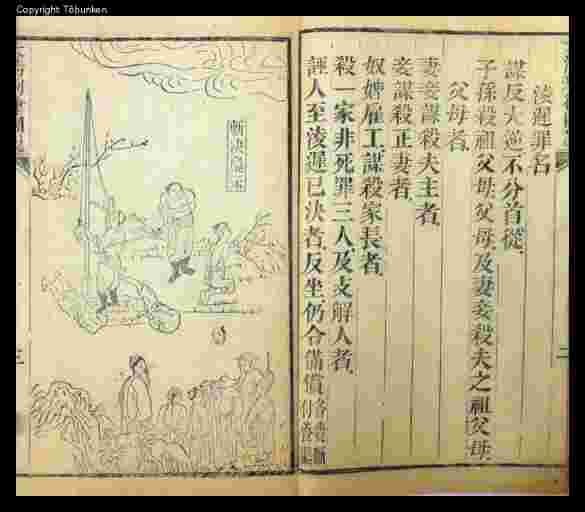 Copyright Tōbunken
凌遲罪名
謀反大逆不分首從
子孫殺祖父母父母及妻妾殺夫之祖父母
父母者
妻妾謀殺夫主者
妾謀殺正妻者
奴婢雇工謀殺家長者
殺一家非死罪三人及支解人者
誣人至凌遲已決者反坐仍合備償